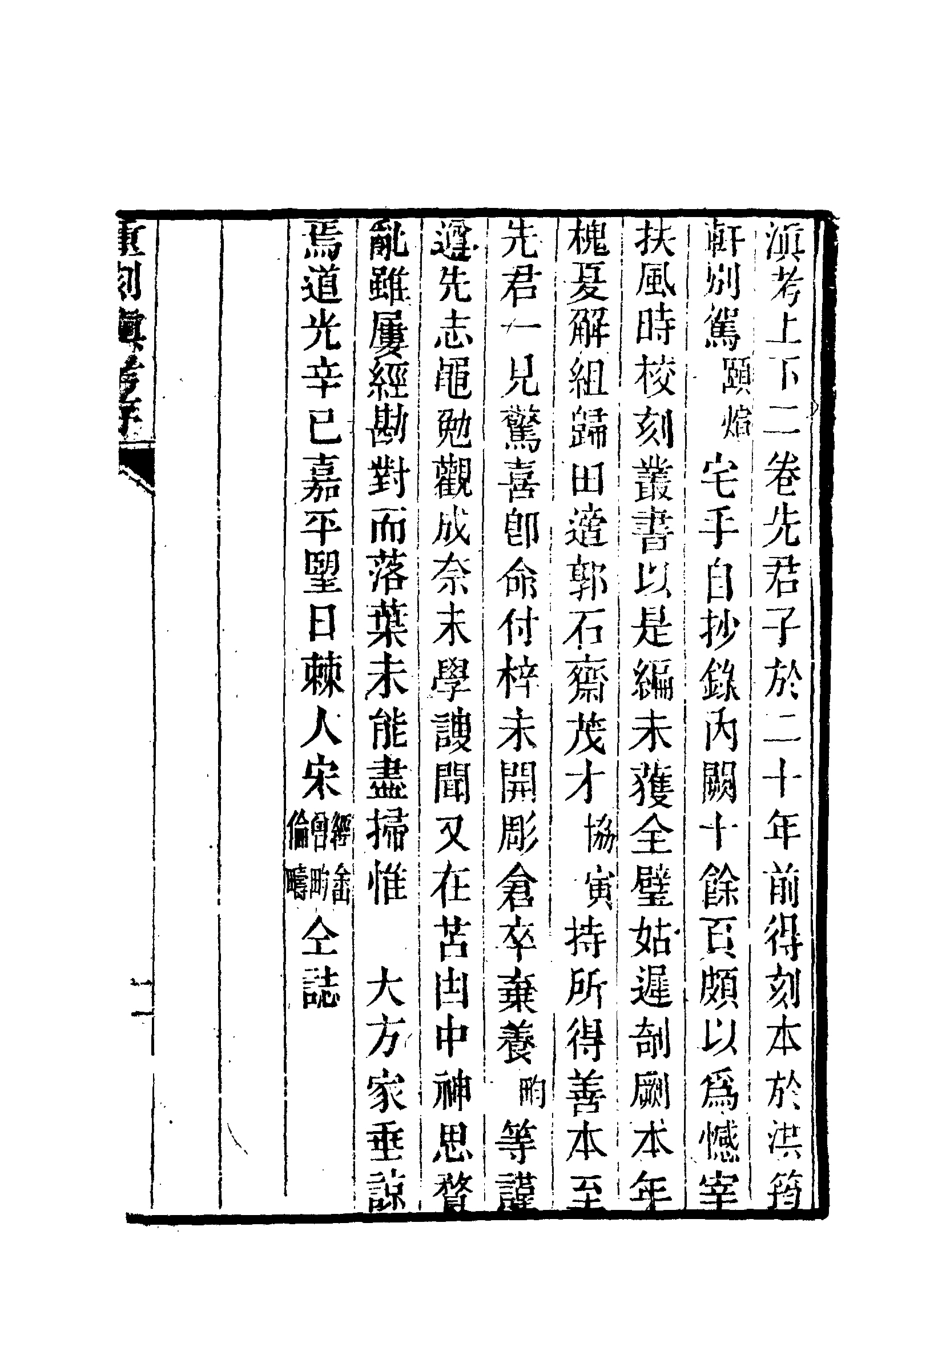 滇考上下二卷先君子於二十年前得刻本於洪筠
軒別駕頤煊宅手自抄錄內闕十餘頁頗以爲憾宰
扶風時校刻叢書以是編未獲全璧姑遲剞劂本年
槐夏解組歸田適郭石齋茂才協寅持所得善本至
先君一見驚喜卽命付梓未開彫倉卒棄養㽦等謹
遵先志黽勉觀成奈末學謏聞又在苫凷中神思瞀
亂雖屢經勘對而落葉未能盡掃惟 大方家垂諒
焉道光辛巳嘉平朢日棘人宋經畬曾㽦倫疇仝誌
重刻滇考序
二